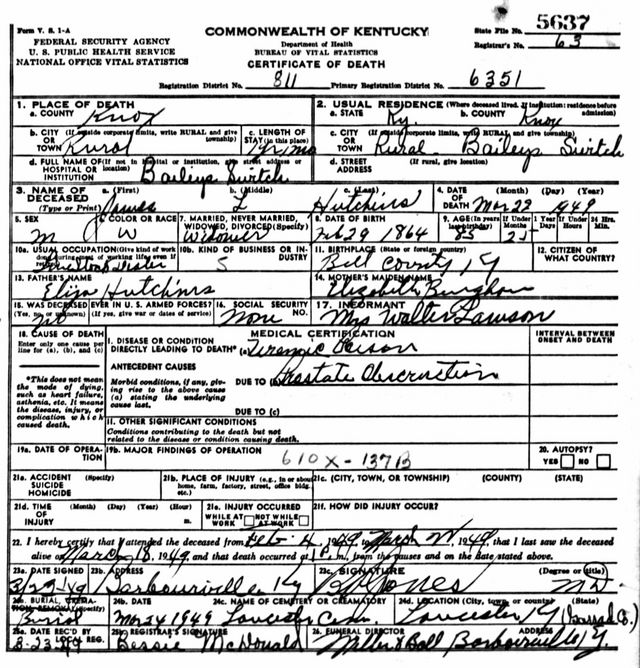 Form V. S. 1-A
FEDERAL SECURITY AGENCY
U. S. PUBLIC HEALTH SERVICE
NATIONAL OFFICE VITAL STATISTICS
COMMONWEALTH OF KENTUCKY
Department of Health
BUREAU OF VITAL STATISTICS
CERTIFICATE OF DEATH
State File No. 5637
Registrar's No. 63
Registration District No. 811 Primary Registration District No. 6351
1. PLACE OF DEATH
a. COUNTY Knox
b. CITY (If outside corporate limits, write RURAL and give township)
OR TOWN Rural
c. LENGTH OF STAY (in this place)
d. FULL NAME OF (If not in hospital or institution, give street address or location)
HOSPITAL OR INSTITUTION Baileys Switch
2. USUAL RESIDENCE (Where deceased lived. If institution: residence before admission)
a. STATE Ky. b. COUNTY Knox
c. CITY (If outside corporate limits, write RURAL and give township)
OR TOWN Rural Baileys Switch
d. STREET ADDRESS (If rural, give location)
3. NAME OF DECEASED (Type or Print)
a. (First) James b. (Middle) L c. (Last) Hutchins
4. DATE OF DEATH (Month) (Day) (Year) Mar 22 1949
5. SEX M
6. COLOR OR RACE W
7. MARRIED, NEVER MARRIED, WIDOWED, DIVORCED (Specify) Widower
8. DATE OF BIRTH Feb 29 1864
9. AGE (In years last birthday) 85 If Under 1 Year Months Days If Under 24 Hrs. Hours Min.
10a. USUAL OCCUPATION (Give kind of work done during most of working life, even if retired)
10b. KIND OF BUSINESS OR INDUSTRY
11. BIRTHPLACE (State or foreign country) Bell County Ky
12. CITIZEN OF WHAT COUNTRY?
13. FATHER'S NAME Elija Hutchins
14. MOTHER'S MAIDEN NAME Elizabeth
15. WAS DECEASED EVER IN U. S. ARMED FORCES? (Yes, no, or unknown) (If yes, give war or dates of service) no
16. SOCIAL SECURITY NO. None
17. INFORMANT Mrs Walter Lawson
18. CAUSE OF DEATH
Enter only one cause per line for (a), (b), and (c)
*This does not mean the mode of dying, such as heart failure, asthenia, etc. It means the disease, injury, or complication which caused death.
MEDICAL CERTIFICATION
INTERVAL BETWEEN ONSET AND DEATH
I. DISEASE OR CONDITION DIRECTLY LEADING TO DEATH* (a) Uremic Poison
ANTECEDENT CAUSES
Morbid conditions, if any, giving rise to the above cause (a) stating the underlying cause last.
DUE TO (b) Prostate Obstruction
DUE TO (c)
11. OTHER SIGNIFICANT CONDITIONS
Conditions contributing to the death but not related to the disease or condition causing death.
19a. DATE OF OPERATION
19b. MAJOR FINDINGS OF OPERATION
610X - 137B
20. AUTOPSY?
YES NO
21a. ACCIDENT SUICIDE HOMICIDE (Specify)
21b. PLACE OF INJURY (e.g., in or about home, farm, factory, street, office bldg., etc.)
21c. (CITY, TOWN, OR TOWNSHIP) (COUNTY) (STATE)
21d. TIME OF INJURY (Month) (Day) (Year) (Hour) m.
21e. INJURY OCCURRED WHILE AT WORK NOT WHILE AT WORK
21f. HOW DID INJURY OCCUR?
22. I hereby certify that I attended the deceased from Feb 4, 1949, to March, 1949, that I last saw the deceased
alive on March 18, 1949, and that death occurred at 1 P. m., from the causes and on the date stated above.
23a. DATE SIGNED
23b. ADDRESS Barbourville Ky
23c. SIGNATURE Jones (Degree or title) MD
24a. BURIAL, CREMATION, REMOVAL (Specify) Burial
24b. DATE Mar 24 1949
24c. NAME OF CEMETERY OR CREMATORY Lancaster Cem.
24d. LOCATION (City, town, or county) (State) Lancaster Ky (Garrard C.)
25a. DATE REC'D BY LOCAL REG. 8-23-49
25b. REGISTRAR'S SIGNATURE Bessie McDonald
26. FUNERAL DIRECTOR ADDRESS Miller & Ball Barbourville Ky.